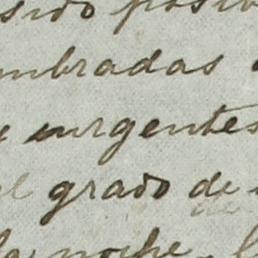 sido posib
mbradas
y urgentes
el grado de
la noche.